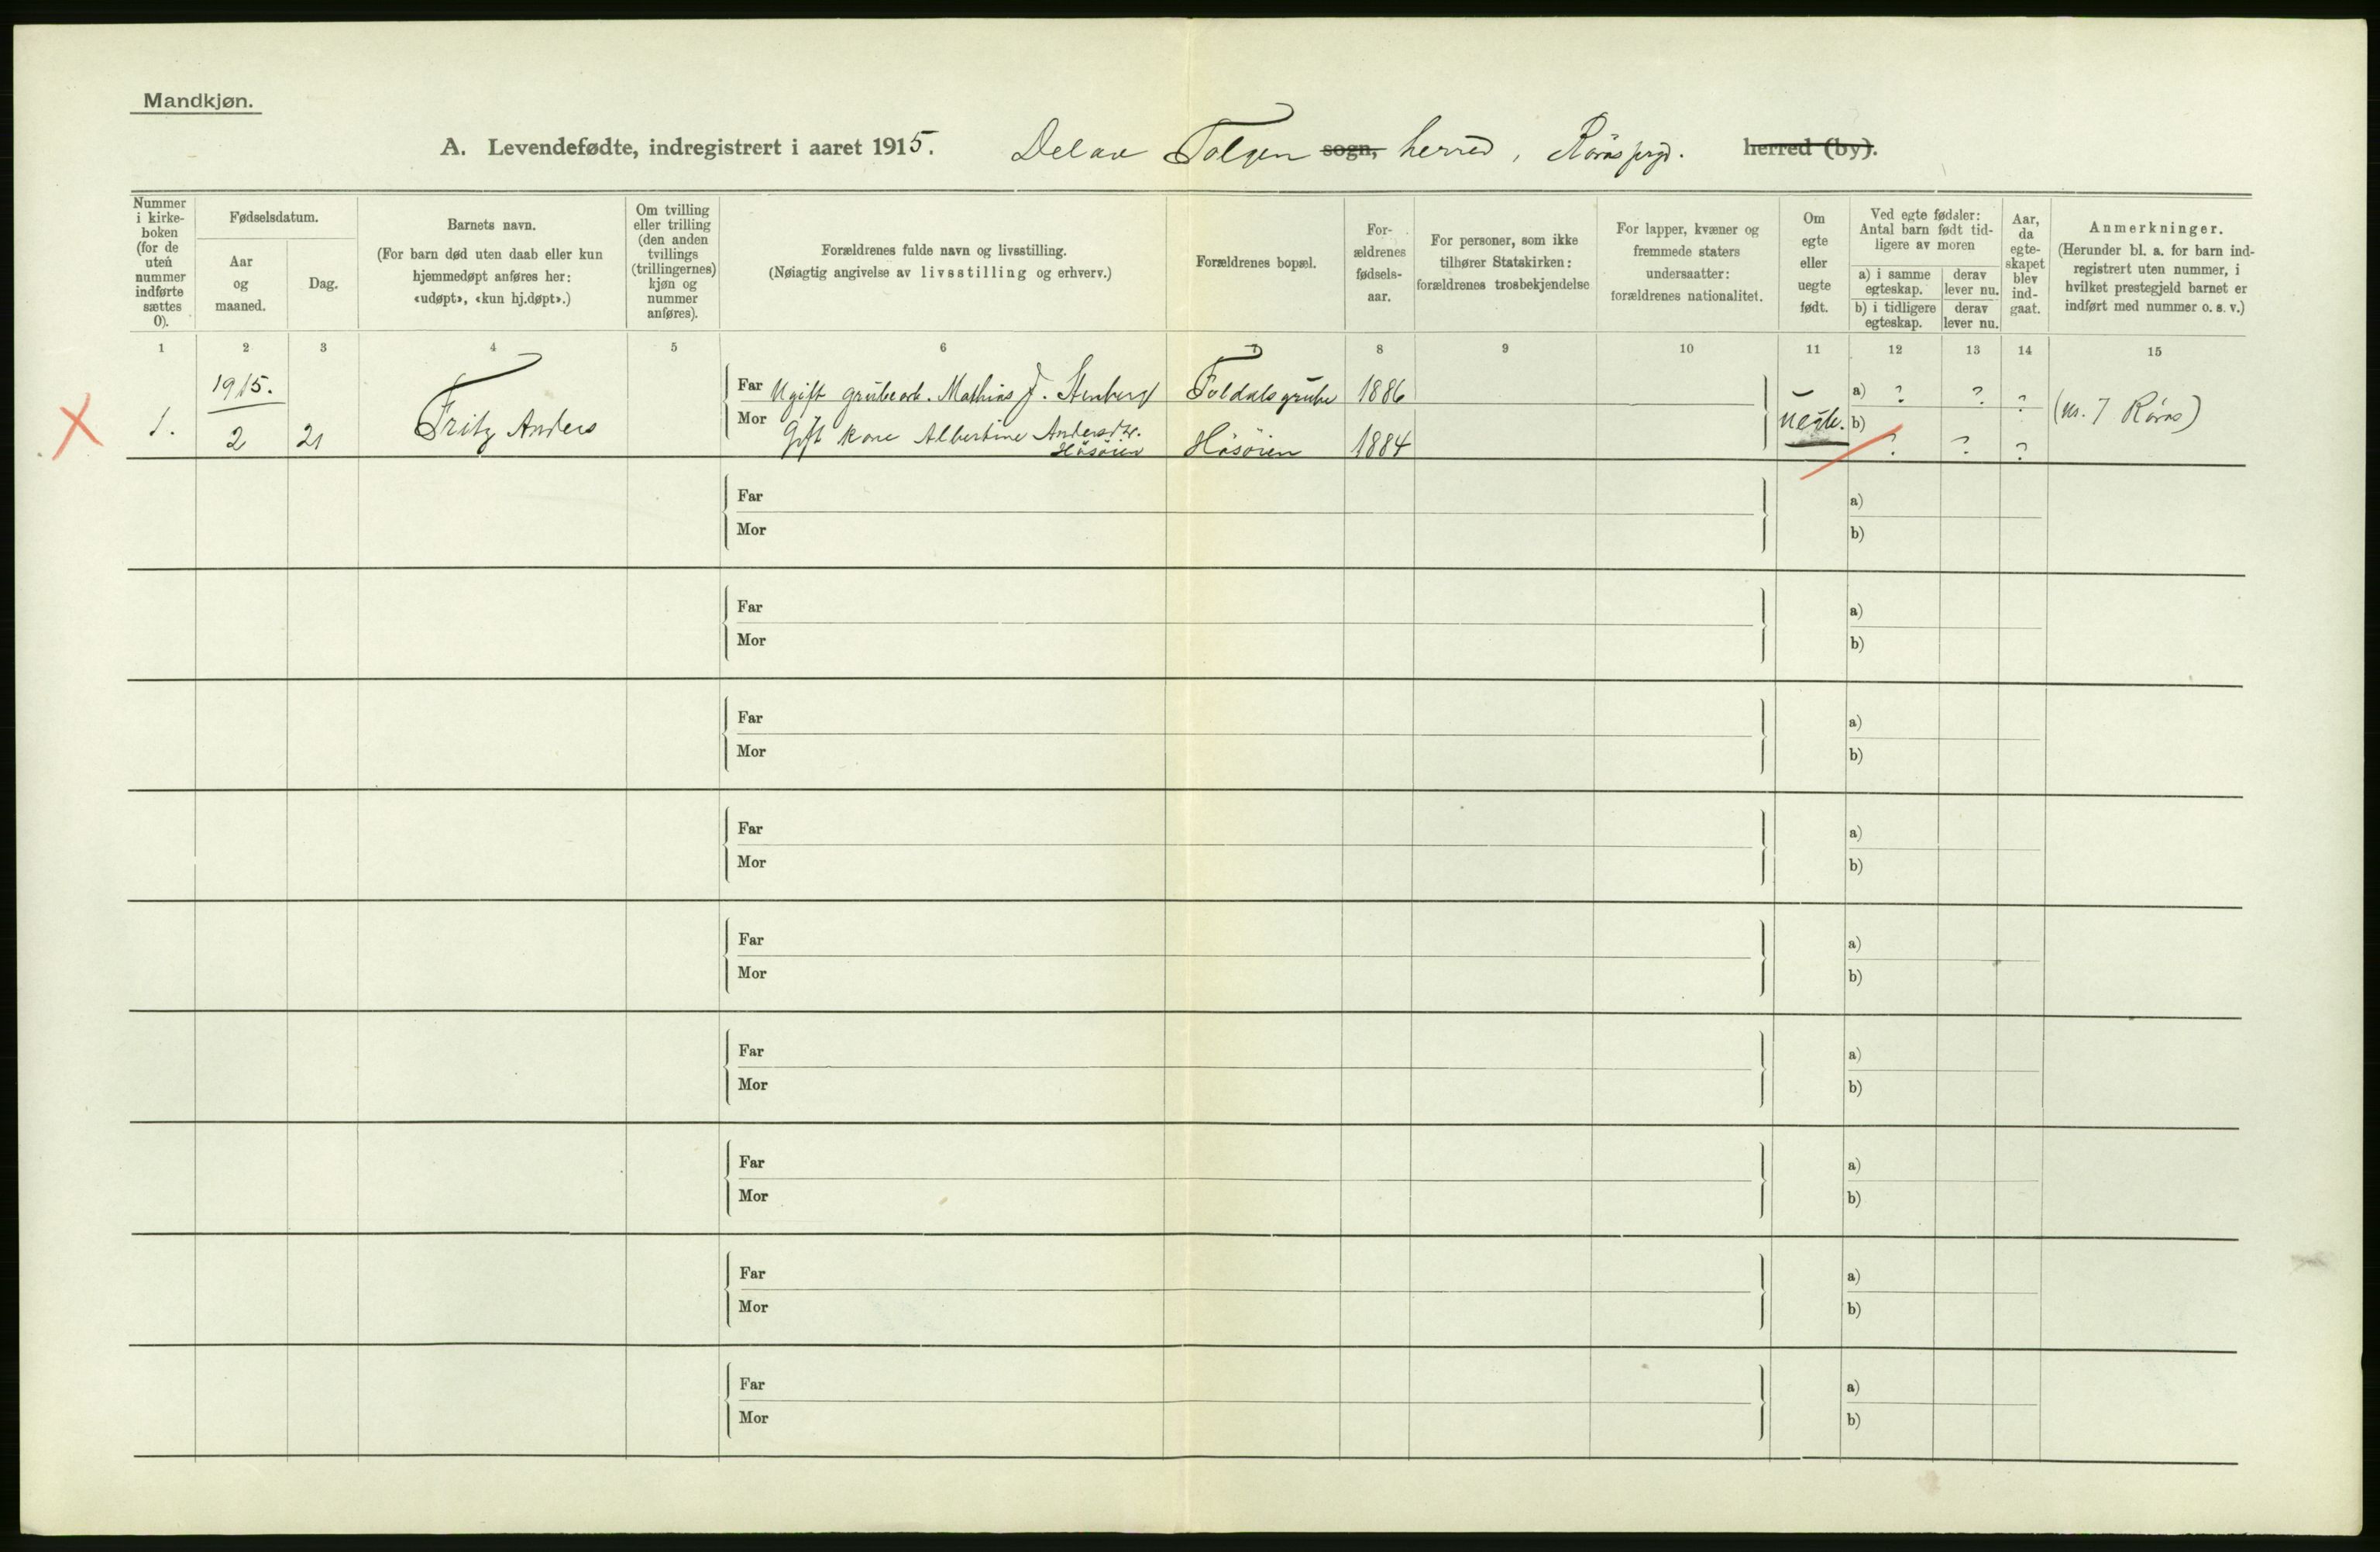 Mandkjøn.
A. Levendefødte, indregistrert i aaret 1915. Del av Tolgen sogn, herred, Røros prgj. herred (by).
Nummer i kirke-boken (for de uten nummer indførte sættes 0).
Fødselsdatum.
Aar og maaned.
Dag.
Barnets navn.
(For barn død uten daab eller kun hjemmedøpt anføres her: «udøpt», «kun hj.døpt».)
Om tvilling eller trilling (den anden tvillings (trillingernes) kjøn og nummer anføres).
Forældrenes fulde navn og livsstilling.
(Nøiagtig angivelse av livsstilling og erhverv.)
Forældrenes bopæl.
For-ældrenes fødsels-aar.
For personer, som ikke tilhører Statskirken: forældrenes trosbekjendelse
For lapper, kvæner og fremmede staters undersaatter: forældrenes nationalitet.
Om egte eller uegte født.
Ved egte fødsler: Antal barn født tid-ligere av moren
a) i samme egteskap.
derav lever nu.
b) i tidligere egteskap.
derav lever nu.
Aar, da egte-skapet blev ind-gaat.
Anmerkninger.
(Herunder bl. a. for barn ind-registrert uten nummer, i hvilket prestegjeld barnet er indført med nummer o. s. v.)
1 2 3 4 5 6 7 8 9 10 11 12 13 14 15
1915.
Far Ugift grubearb. Mathias J. Stenberg Foldalsgrube 1886 a) ? ? ?
1. 2 21 Fritz Anders Mor Gift kone Albertine Andersdtr. Håsøien Håsøien 1884 uegte. b) ? ? ? (nr. 7 Røros)
Far a)
Mor b)
Far a)
Mor b)
Far a)
Mor b)
Far a)
Mor b)
Far a)
Mor b)
Far a)
Mor b)
Far a)
Mor b)
Far a)
Mor b)
Far a)
Mor b)